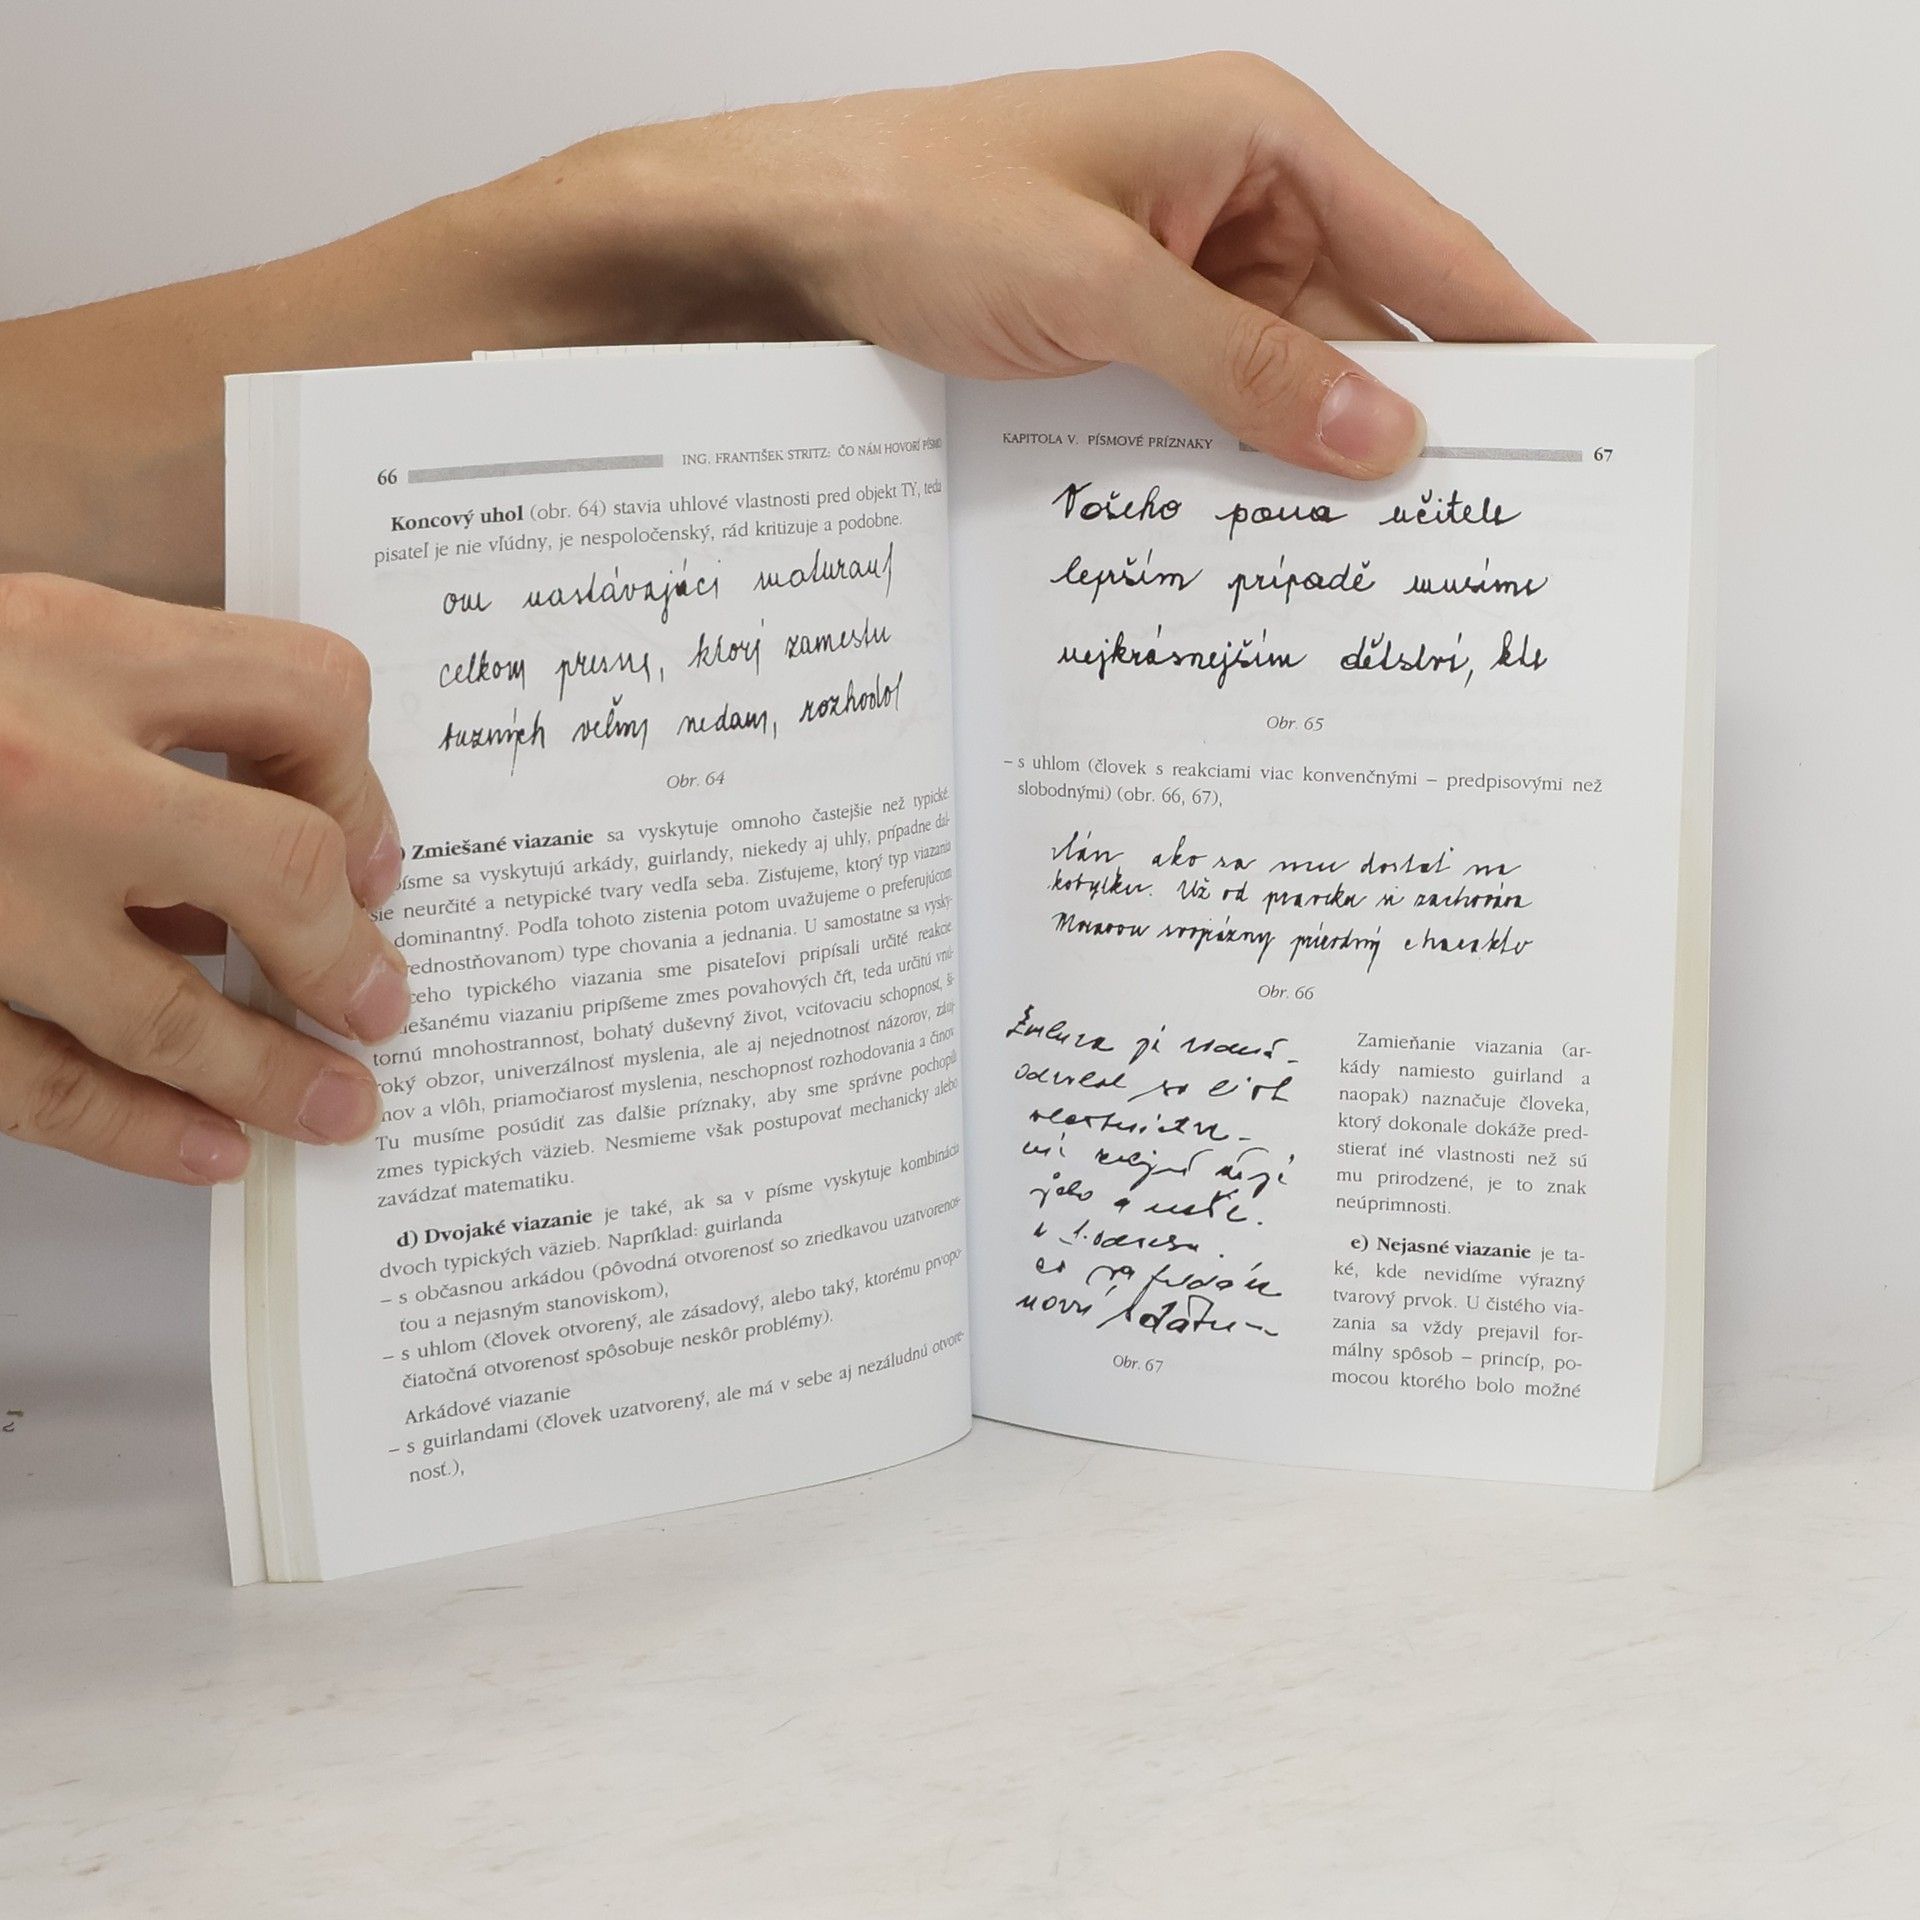 66 ING. FRANTIŠEK STRITZ: ČO NÁM HOVORÍ PÍSMO
Koncový uhol (obr. 64) stavia uhlové vlastnosti pred objekt TY, teda
pisateľ je nie vľúdny, je nespoločenský, rád kritizuje a podobne.
om nastávajúci maturant
celkom presne, ktorý zamestn
rôznych veľmi nedam, rozhodol
Obr. 64
) Zmiešané viazanie sa vyskytuje omnoho častejšie než typické.
písme sa vyskytujú arkády, guirlandy, niekedy aj uhly, prípadne ďal-
šie neurčité a netypické tvary vedľa seba. Zisťujeme, ktorý typ viazania
dominantný. Podľa tohoto zistenia potom uvažujeme o preferujúcom
rednostňovanom) type chovania a jednania. U samostatne sa vysky-
ceho typického viazania sme pisateľovi pripísali určité reakcie.
iešanému viazaniu pripíšeme zmes povahových čŕt, teda určitú vnú-
tornú mnohostrannosť, bohatý duševný život, vciťovaciu schopnosť, ši-
roký obzor, univerzálnosť myslenia, ale aj nejednotnosť názorov, záuj-
mov a vlôh, priamočiarosť myslenia, neschopnosť rozhodovania a činov
Tu musíme posúdiť zas ďalšie príznaky, aby sme správne pochopili
zmes typických väzieb. Nesmieme však postupovať mechanicky alebo
zavádzať matematiku.
d) Dvojaké viazanie je také, ak sa v písme vyskytuje kombinácia
dvoch typických väzieb. Napríklad: guirlanda
– s občasnou arkádou (pôvodná otvorenosť so zriedkavou uzatvorenos-
ťou a nejasným stanoviskom),
– s uhlom (človek otvorený, ale zásadový, alebo taký, ktorému prvopo-
čiatočná otvorenosť spôsobuje neskôr problémy).
Arkádové viazanie
– s guirlandami (človek uzatvorený, ale má v sebe aj nezáludnú otvore-
nosť.),
KAPITOLA V. PÍSMOVÉ PRÍZNAKY 67
Vašeho pana učitele
lepším případě musíme
nejkrásnejším dětství, kde
Obr. 65
– s uhlom (človek s reakciami viac konvenčnými – predpisovými než
slobodnými) (obr. 66, 67),
ako sa mu dostať na
kobylku. Už od praveku si zachováva
svojrázny prírodný charakter
Obr. 66
Obr. 67
Zamieňanie viazania (ar-
kády namiesto guirland a
naopak) naznačuje človeka,
ktorý dokonale dokáže pred-
stierať iné vlastnosti než sú
mu prirodzené, je to znak
neúprimnosti.
e) Nejasné viazanie je ta-
ké, kde nevidíme výrazný
tvarový prvok. U čistého via-
zania sa vždy prejavil for-
málny spôsob – princíp, po-
mocou ktorého bolo možné